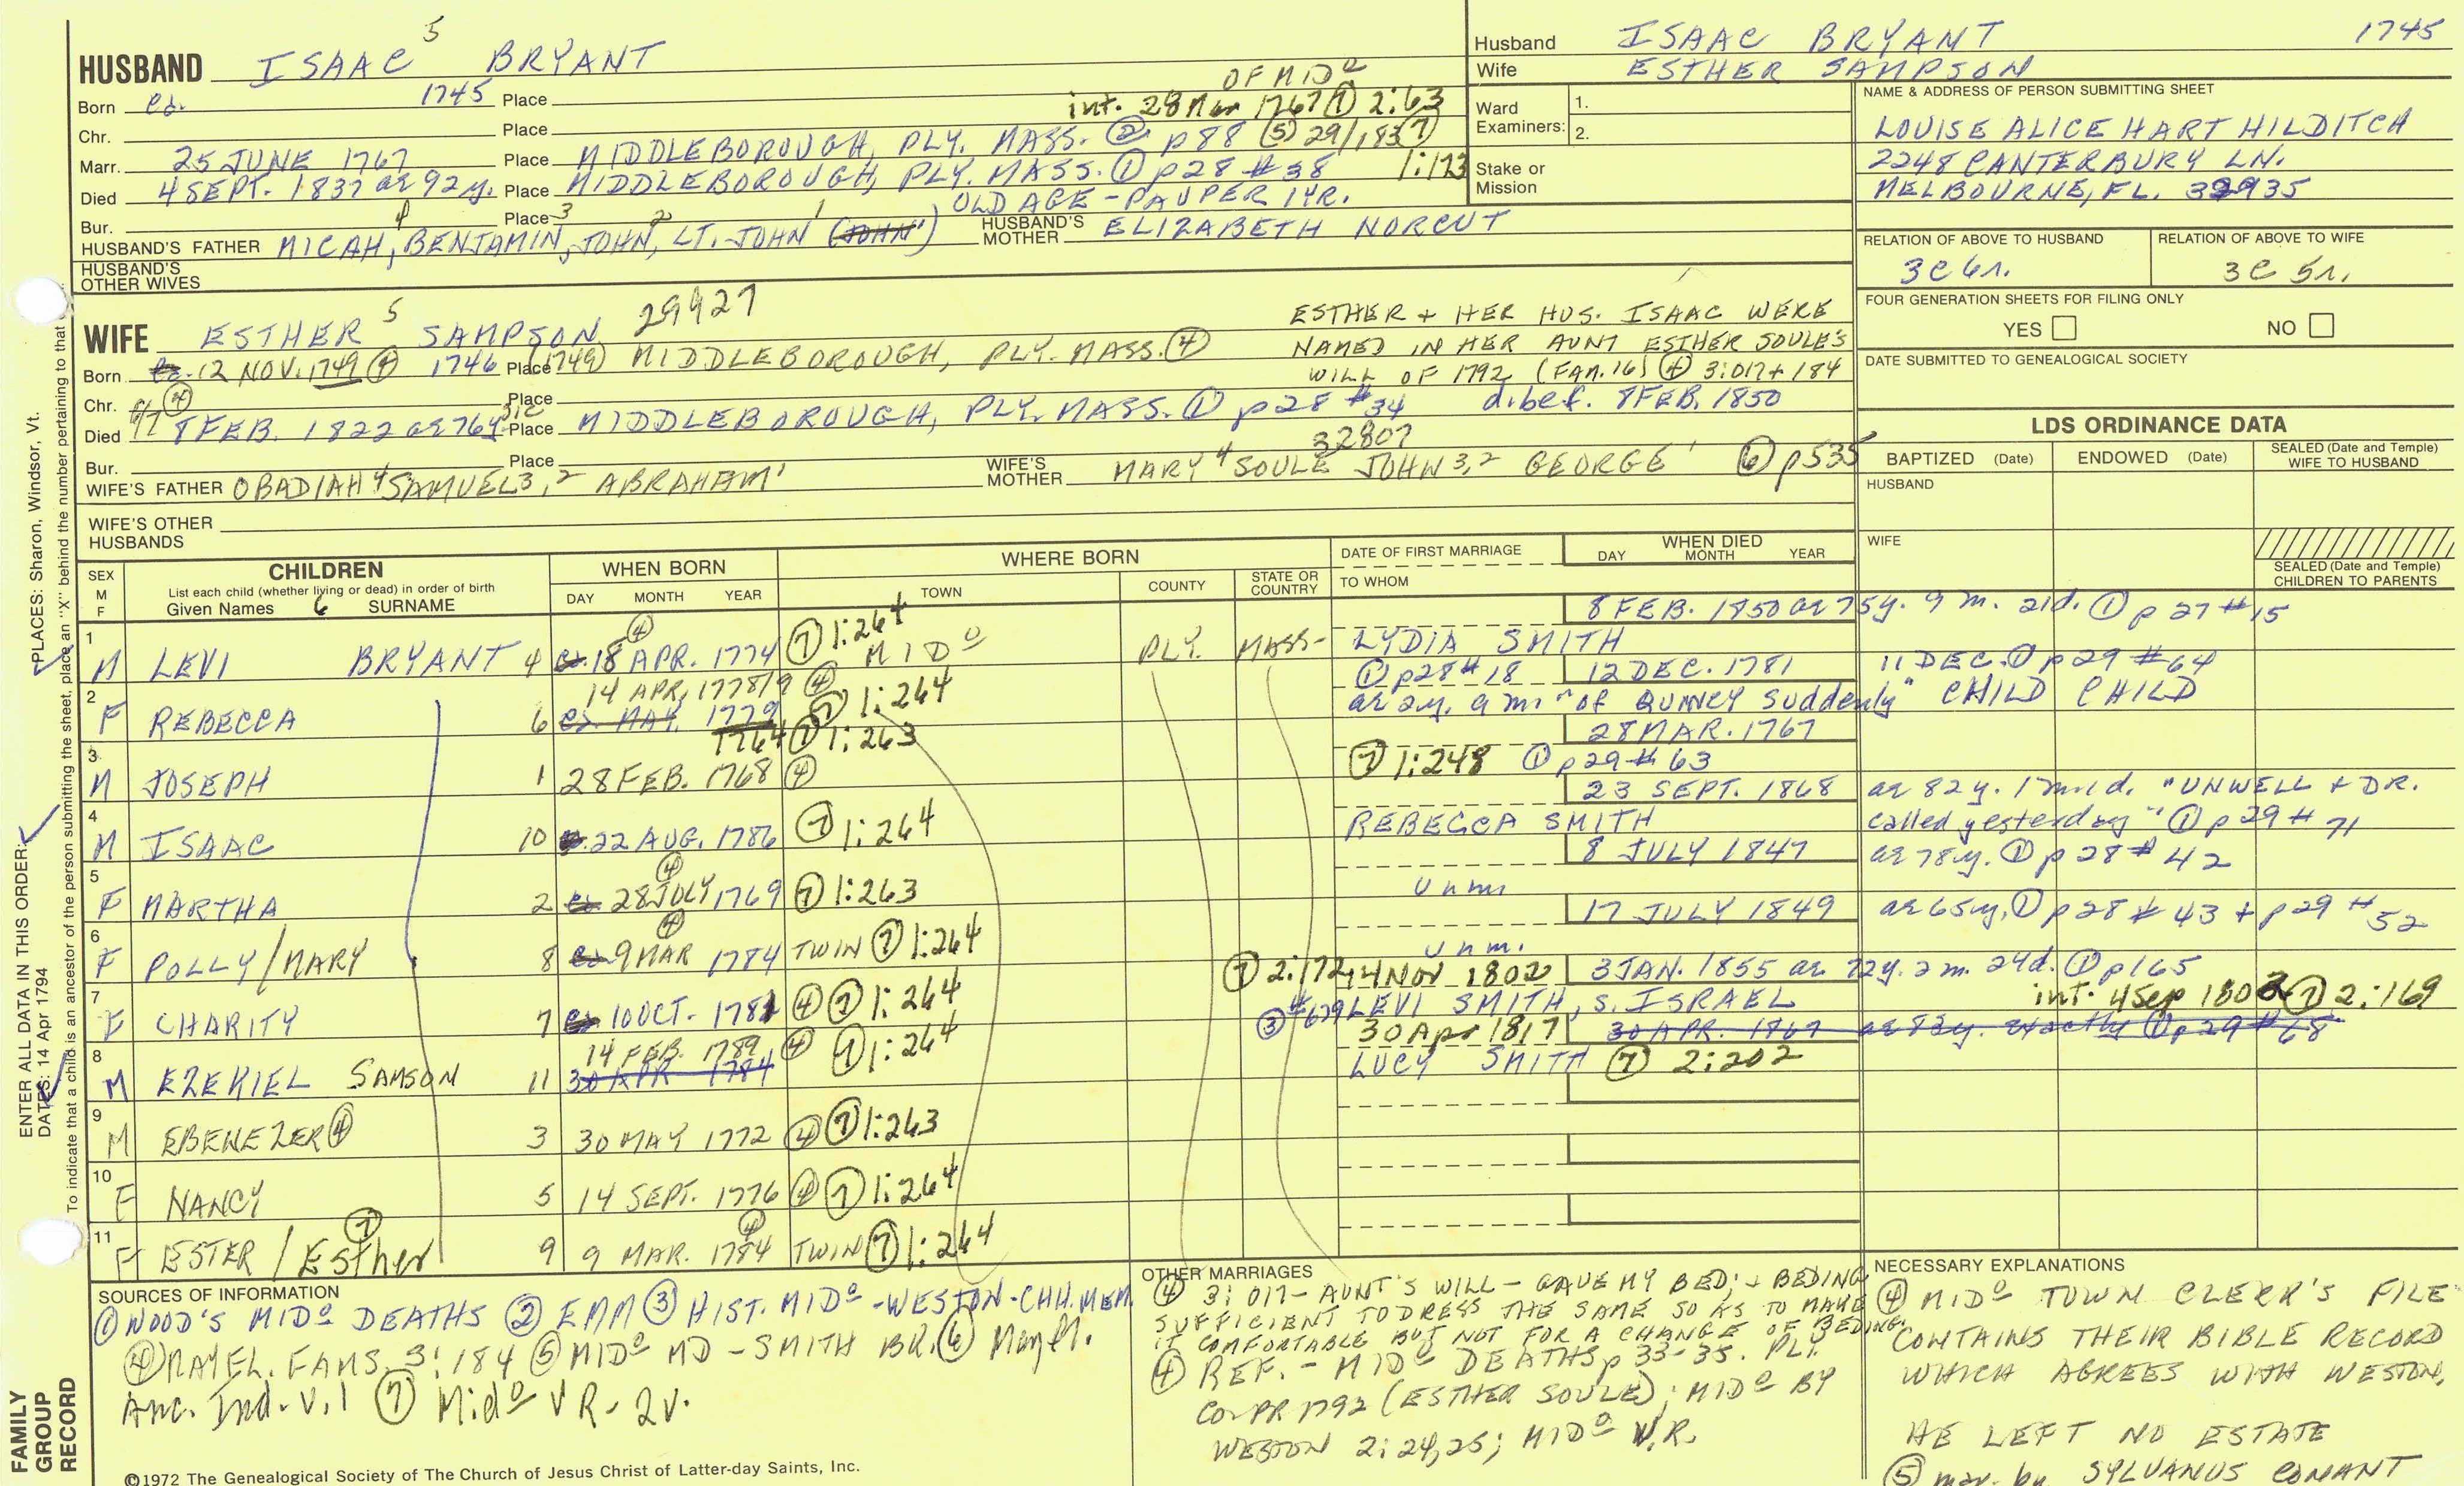 HUSBAND ISAAC 5 BRYANT
Born ca. 1745 Place
OF MIDO
int. 28 Mar 1767 ⑦ 2:63
Chr. Place
Marr. 25 JUNE 1767 Place MIDDLEBOROUGH, PLY. MASS. ② p88 ⑤ 29/183 ⑦ 1:123
Died 4 SEPT. 1837 ae 92 y. Place MIDDLEBOROUGH, PLY. MASS. ① p28 #38
OLD AGE - PAUPER 1YR.
Bur. Place
HUSBAND'S FATHER MICAH 4, BENJAMIN 3, JOHN 2, LT. JOHN 1 (JOHN 1) HUSBAND'S MOTHER ELIZABETH NORCUT
HUSBAND'S OTHER WIVES
Husband ISAAC BRYANT 1745
Wife ESTHER SAMPSON
Ward 1.
Examiners: 2.
Stake or Mission
NAME & ADDRESS OF PERSON SUBMITTING SHEET
LOUISE ALICE HART HILDITCH
2248 CANTERBURY LN.
MELBOURNE, FL. 32935
RELATION OF ABOVE TO HUSBAND RELATION OF ABOVE TO WIFE
3C 6r. 3C 5r.
FOUR GENERATION SHEETS FOR FILING ONLY
YES NO
DATE SUBMITTED TO GENEALOGICAL SOCIETY
WIFE ESTHER 5 SAMPSON 29427
Born ca. 12 NOV. 1749 ④ 1746 Place (1749) MIDDLEBOROUGH, PLY. MASS. ④
ESTHER + HER HUS. ISAAC WERE
NAMED IN HER AUNT ESTHER SOULE'S
WILL OF 1792 (FAM. 16) ④ 3:017 + 184
Chr. Place
d. bef. 8 FEB. 1850
Died 6/7 ④ 8 FEB. 1822 ae 76 y. sic Place MIDDLEBOROUGH, PLY. MASS. ① p28 #34
Bur. Place
32807
WIFE'S FATHER OBADIAH 4 SAMUEL 3,2 ABRAHAM 1 WIFE'S MOTHER MARY 4 SOULE JOHN 3,2 GEORGE 1 ⑥ p535
WIFE'S OTHER HUSBANDS
LDS ORDINANCE DATA
BAPTIZED (Date) ENDOWED (Date) SEALED (Date and Temple) WIFE TO HUSBAND
HUSBAND
WIFE
SEALED (Date and Temple) CHILDREN TO PARENTS
SEX M F
CHILDREN
List each child (whether living or dead) in order of birth
Given Names 6 SURNAME
WHEN BORN
DAY MONTH YEAR
WHERE BORN
TOWN COUNTY STATE OR COUNTRY
DATE OF FIRST MARRIAGE
TO WHOM
WHEN DIED
DAY MONTH YEAR
8 FEB. 1850 ae 75y. 9 m. 21d. ① p 27 #15
1 M LEVI BRYANT 4 ca. 18 APR. 1774 ④ ⑦ 1:264 MIDO PLY. MASS- LYDIA SMITH
① p28 #18 12 DEC. 1781 11 DEC. ① p29 #64
14 APR, 1778/9 ④
2 F REBECCA 6 ca. MAR. 1779 ⑦ 1:264 ae 2y. 9 m. "of QUINCY suddenly" CHILD CHILD
28 MAR. 1767
1764 ⑦ 1:263
3 M JOSEPH 1 28 FEB. 1768 ④ ⑦ 1:248 ① p29 #63
23 SEPT. 1868 ae 82 y. 1 m. 1 d. "UNWELL + DR.
4 M ISAAC 10 ca. 22 AUG. 1786 ⑦ 1:264 REBECCA SMITH called yesterday" ① p29 #71
8 JULY 1847 ae 78y. ① p28 #42
5 F MARTHA 2 ca. 28 JULY 1769 ④ ⑦ 1:263 Unm.
17 JULY 1849 ae 65y, ① p28 #43 + p29 #52
6 F POLLY/MARY 8 ca. 9 MAR 1784 ④ TWIN ⑦ 1:264 Unm.
⑦ 2:172 14 NOV 1802 3 JAN. 1855 ae 72y. 2 m. 24d. ① p165
int. 4 Sep 1802 ⑦ 2:169
7 F CHARITY 7 ca. 10 OCT. 1781 ④ ⑦ 1:264 ③ #679 LEVI SMITH, s. ISRAEL
30 Apr 1817 30 APR. 1867 ae 83y. exactly ① p29 #68
14 FEB. 1789 ④
8 M EZEKIEL SAMSON 11 30 APR 1784 ⑦ 1:264 LUCY SMITH ⑦ 2:202
9 M EBENEZER ④ 3 30 MAY 1772 ④ ⑦ 1:263
10 F NANCY 5 14 SEPT. 1776 ④ ⑦ 1:264
11 F ESTER / Esther ⑦ 9 9 MAR. 1784 ④ TWIN ⑦ 1:264
SOURCES OF INFORMATION
① WOOD'S MIDO DEATHS ② EMM ③ HIST. MIDO -WESTON-CHH. MEM.
④ MAYFL. FAMS. 3:184 ⑤ MIDO MD - SMITH BR. ⑥ Mayfl.
Anc. Ind. V. 1 ⑦ MidO VR- 2v.
OTHER MARRIAGES
④ 3:017- AUNT'S WILL - GAVE MY BED; + BEDING
SUFFICIENT TO DRESS THE SAME SO AS TO MAKE
IT COMFORTABLE BUT NOT FOR A CHANGE OF BEDING.
④ REF. - MIDO DEATHS p 33-35. PLY.
Co. PR 1792 (ESTHER SOULE); MIDO BY
WESTON 2:24,25; MIDO V.R.
NECESSARY EXPLANATIONS
④ MIDO TOWN CLERK'S FILE
CONTAINS THEIR BIBLE RECORD
WHICH AGREES WITH WESTON.
HE LEFT NO ESTATE
⑤ mar. by SYLVANUS CONANT
©1972 The Genealogical Society of The Church of Jesus Christ of Latter-day Saints, Inc.
FAMILY GROUP RECORD
ENTER ALL DATA IN THIS ORDER:
DATES: 14 Apr 1794
PLACES: Sharon, Windsor, Vt.
To indicate that a child is an ancestor of the person submitting the sheet, place an "X" behind the number pertaining to that